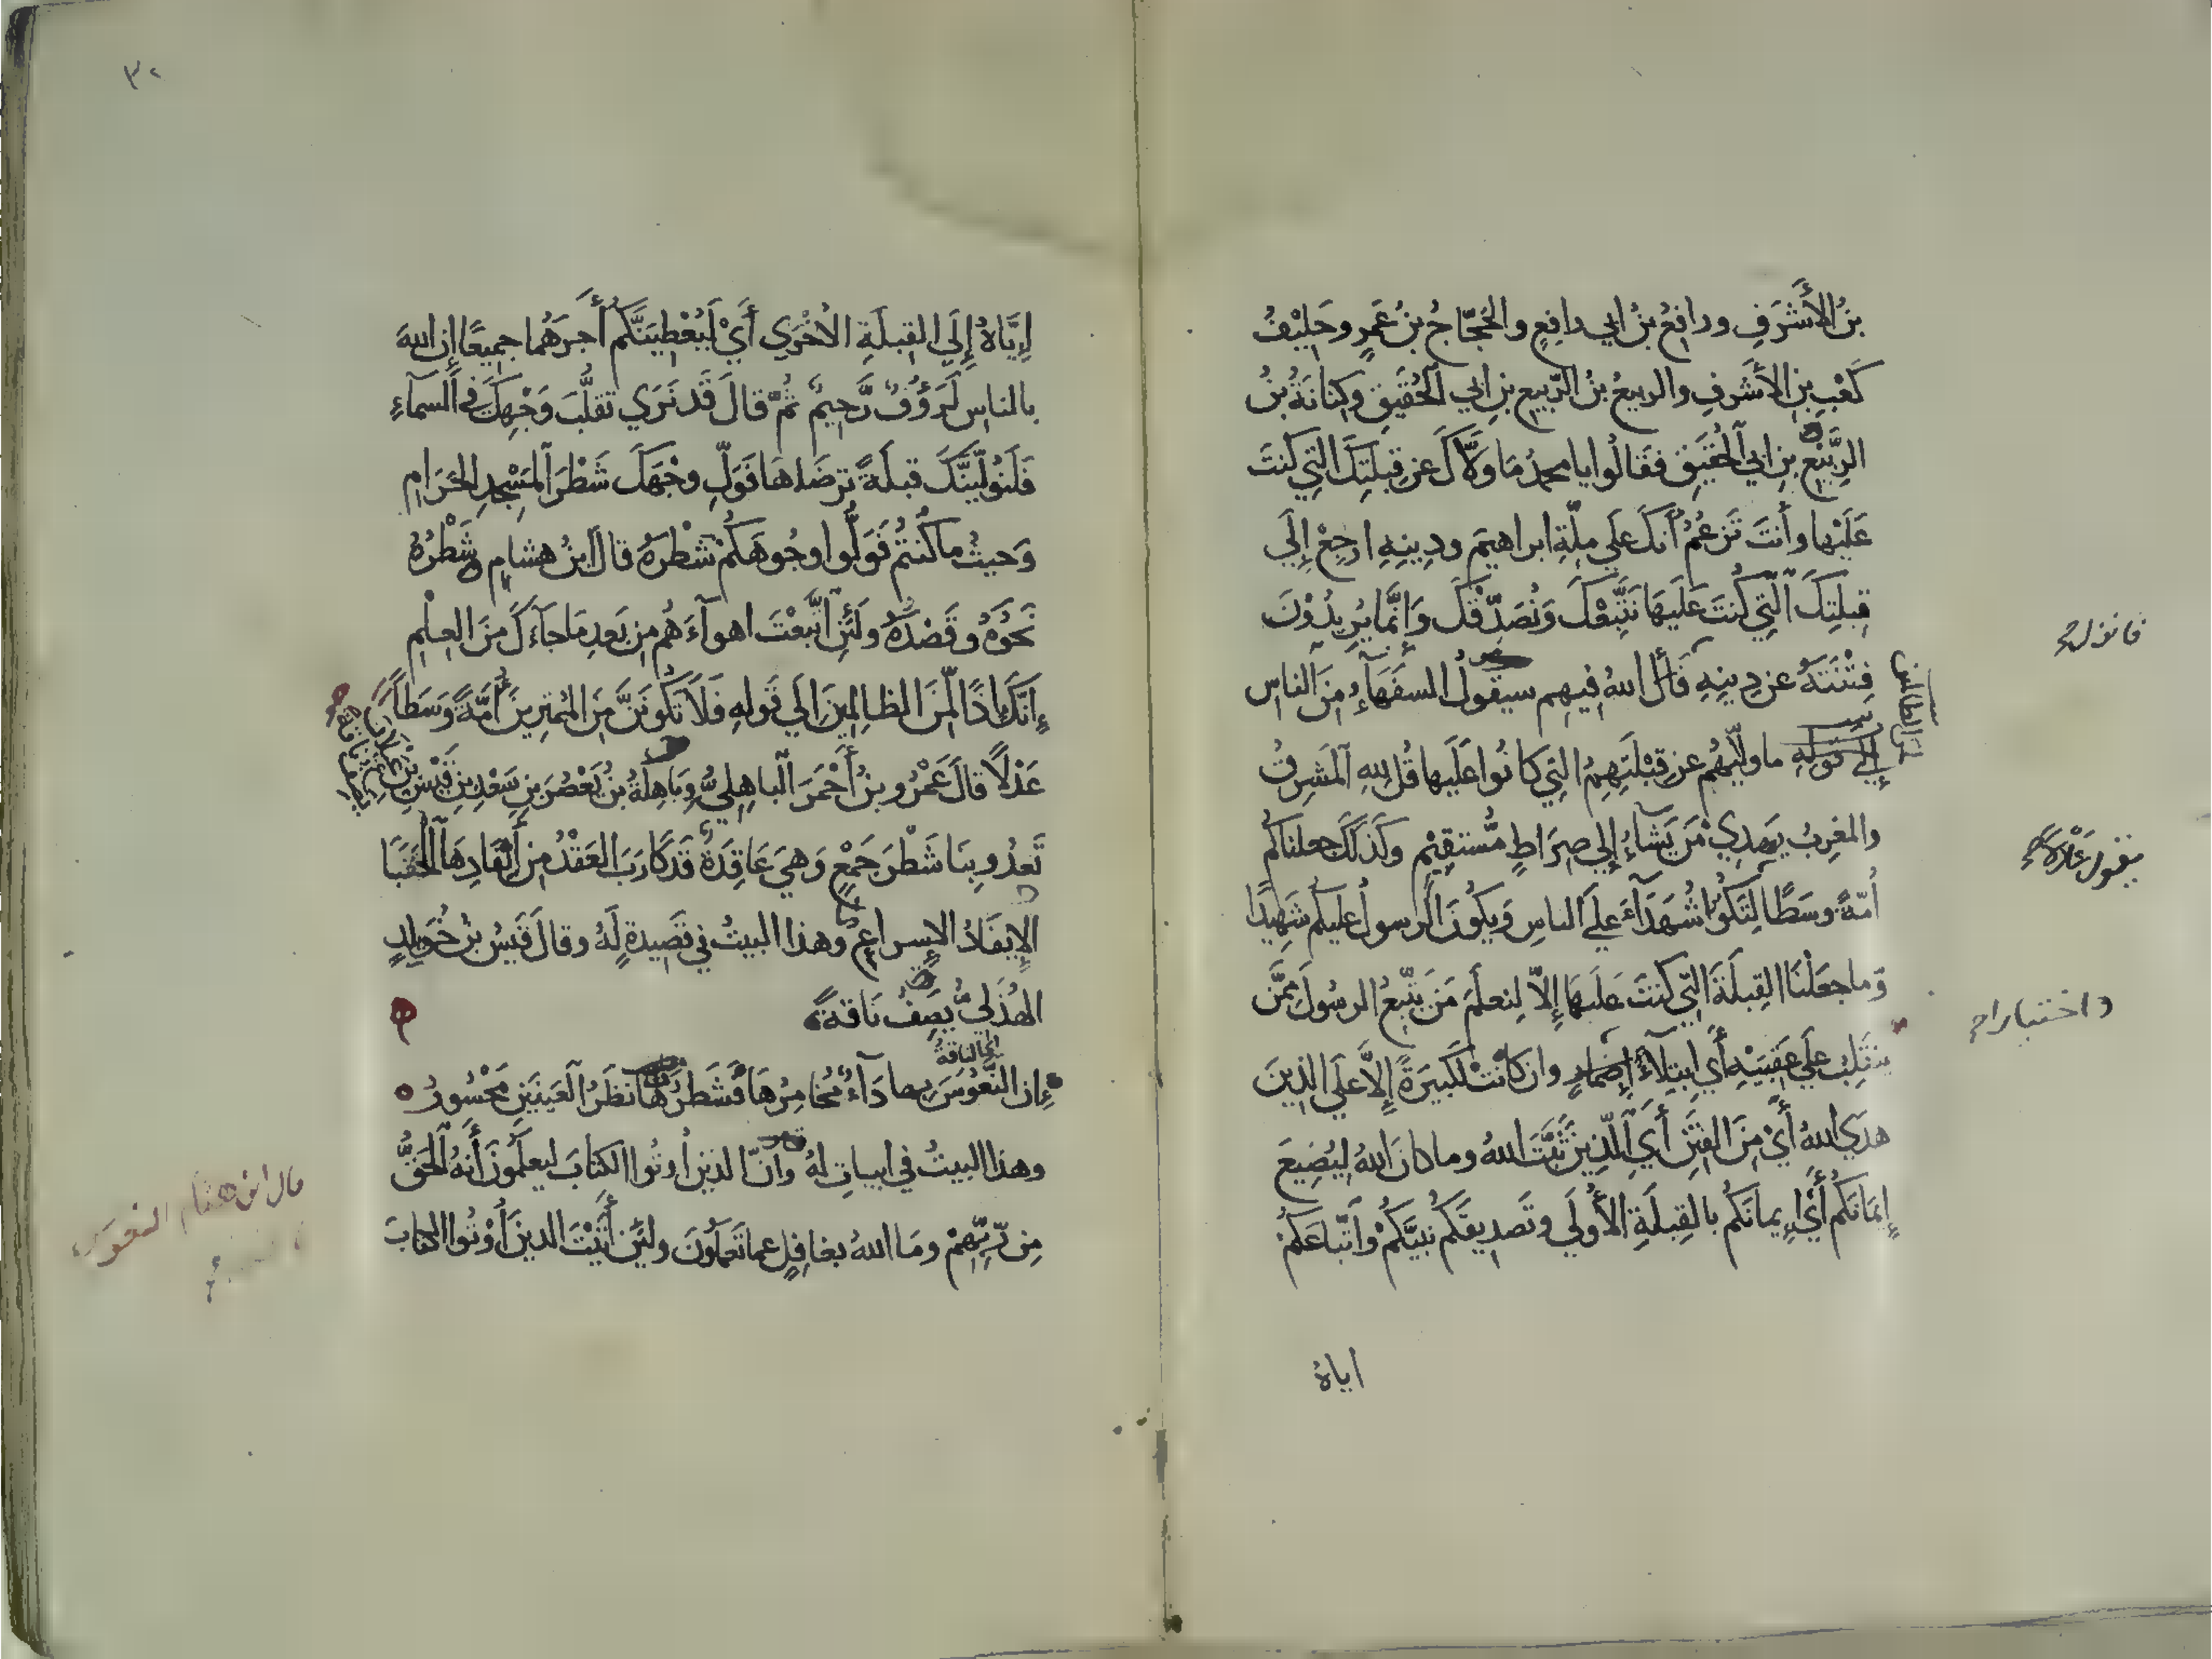 بنُ الأَشْرَفِ ورافعُ بنُ ابي رافعٍ والحَجّاجُ بنُ عَمرٍ وحَلِيْفُ
كَعْبِ بنِ الأَشرَفِ والربيعُ بنُ الرَّبيعِ بنِ ابي الحُقَيقِ وكِنَانَةُ بنُ
الرَّبيْعِ بنِ ابي الحُقَيقِ فقَالُوا يا محمدُ مَا وَلَّاكَ عن قِبلَتِكَ التِي كُنتَ
عَلَيْها وأنتَ تَزعُمُ أنكَ علَي مِلّةِ ابراهيمَ ودِينِهِ ارجِعْ إلَي
قِبلتِكَ الّتِي كُنتَ عَلَيهَا نَتَّبِعْكَ وَنُصَدِّقْكَ وَإنَّما يُرِيدُوْنَ
فِتْنَتَهُ عن دِينِهِ فَأنْزَلَ اللهُ فيهِم سيقُولُ السفَهَآءُ مِنَ الناسِ
إلَي قَولِهِ ما ولّيهُم عن قِبْلَتِهِمُ التِي كَانُوا عَلَيها قُل لِلهِ المَشرِقُ
والمغرِبُ يَهدِي مَن يَشاءُ إلي صِرَاطٍ مُّستقِيْمٍ وكَذلكَ جعلناكم
أُمّةً وسَطًا لِتَكُونُوا شُهَدَآءَ علَي الناسِ وَيكُونَ الرسولُ عليكم شَهِيدًا
وَما جعَلْنَا القِبلَةَ التِّي كنتَ عَليهَا إلّا لِنعلَمَ مَن يَتّبِعُ الرسُولَ مِمَّن
ينقَلِبُ علَي عَقِبَيْهِ أَي ابتِلآءً وان كانَتْ لَكَبيرَةً إلَّا علَي الذِينَ
هدَي اللهُ أيْ مِنَ الفِتَنِ أيِ الّذِينَ ثَبَّتَ اللهُ وما كانَ اللهُ لِيُضِيعَ
إيمَانَكُم أيْ إيمانَكُم بالقِبلَةِ الأُولَي وتَصدِيقَكُم نبيَّكُمْ وَاتّباعَكُمْ
اياهُ
فانزل
من الظالمين
واختبارا
٣٢
إيَّاهُ إلَي القِبلَةِ الأُخْرَي أَيْ لَيُعْطِيَنَّكُم أَجرَهُما جميعًا إن اللهَ
بالناسِ لَرَؤُفٌ رَّحِيمٌ ثمّ قالَ قَد نَرَي تقلُّبَ وَجْهِكَ في السمآءِ
فَلَنُوَلِّيَنَّكَ قبلَةً تَرضَاهَا فَوَلِّ وجْهَكَ شَطْرَ المَسْجِدِ الحَرَامِ
وَحيثُ ما كُنتُمْ فَوَلُّوا وجُوهَكُمْ شَطْرَهُ قالَ ابنُ هشامٍ شَطْرُهُ
نَحْوُهُ وقَصْدُهُ ولَئِنِ اتَّبعْتَ اهوآءَهُم مِن بَعدِ مَا جآءَكَ مِنَ العِلْمِ
إنّكَ إذًا لَّمِنَ الظالِمِينَ إلَي قَولِهِ فَلَا تَكُونَنَّ مِنَ المُمتَرِينَ أُمَّةً وَسَطًا
عَدْلًا قالَ عَمْرُو بنُ أحْمَرَ الباهِلِيُّ وبَاهِلَةُ بنُ يَعْصُرَ بنِ سَعْدِ بنِ قَيْسِ بنِ عيلان
تَعدُو بِنَا شَطْرَ جَمْعٍ وَهيَ عَاقِدَةٌ قَد كَارَبَ العَقْدُ مِن إيْفَادِهَا الحَقَبَا
الإيفَادُ الإسراعُ وهذا البيتُ في قَصِيدةٍ لَهُ وقالَ قَيسُ بنُ خُوَيلِدٍ
الهُذَلِيُّ يَصِفُ نَاقَةً
إن النَّعُوسَ بها دَآءٌ مُخَامِرُهَا فشَطْرُهَا نظَرُ العَينَينِ مَحْسُورُ
اي الناقةَ
وهذا البيتُ في ابياتٍ لهُ وانّ الذين أُوتُوا الكتابَ ليَعلَمُونَ أَنهُ الحَقُّ
مِن رّبِّهِمْ ومَا اللهُ بغافِلٍ عما تَعمَلُونَ ولئِن أتَيْتَ الذينَ أُوتُوا الكتابَ
قال ابن هشام النعوس